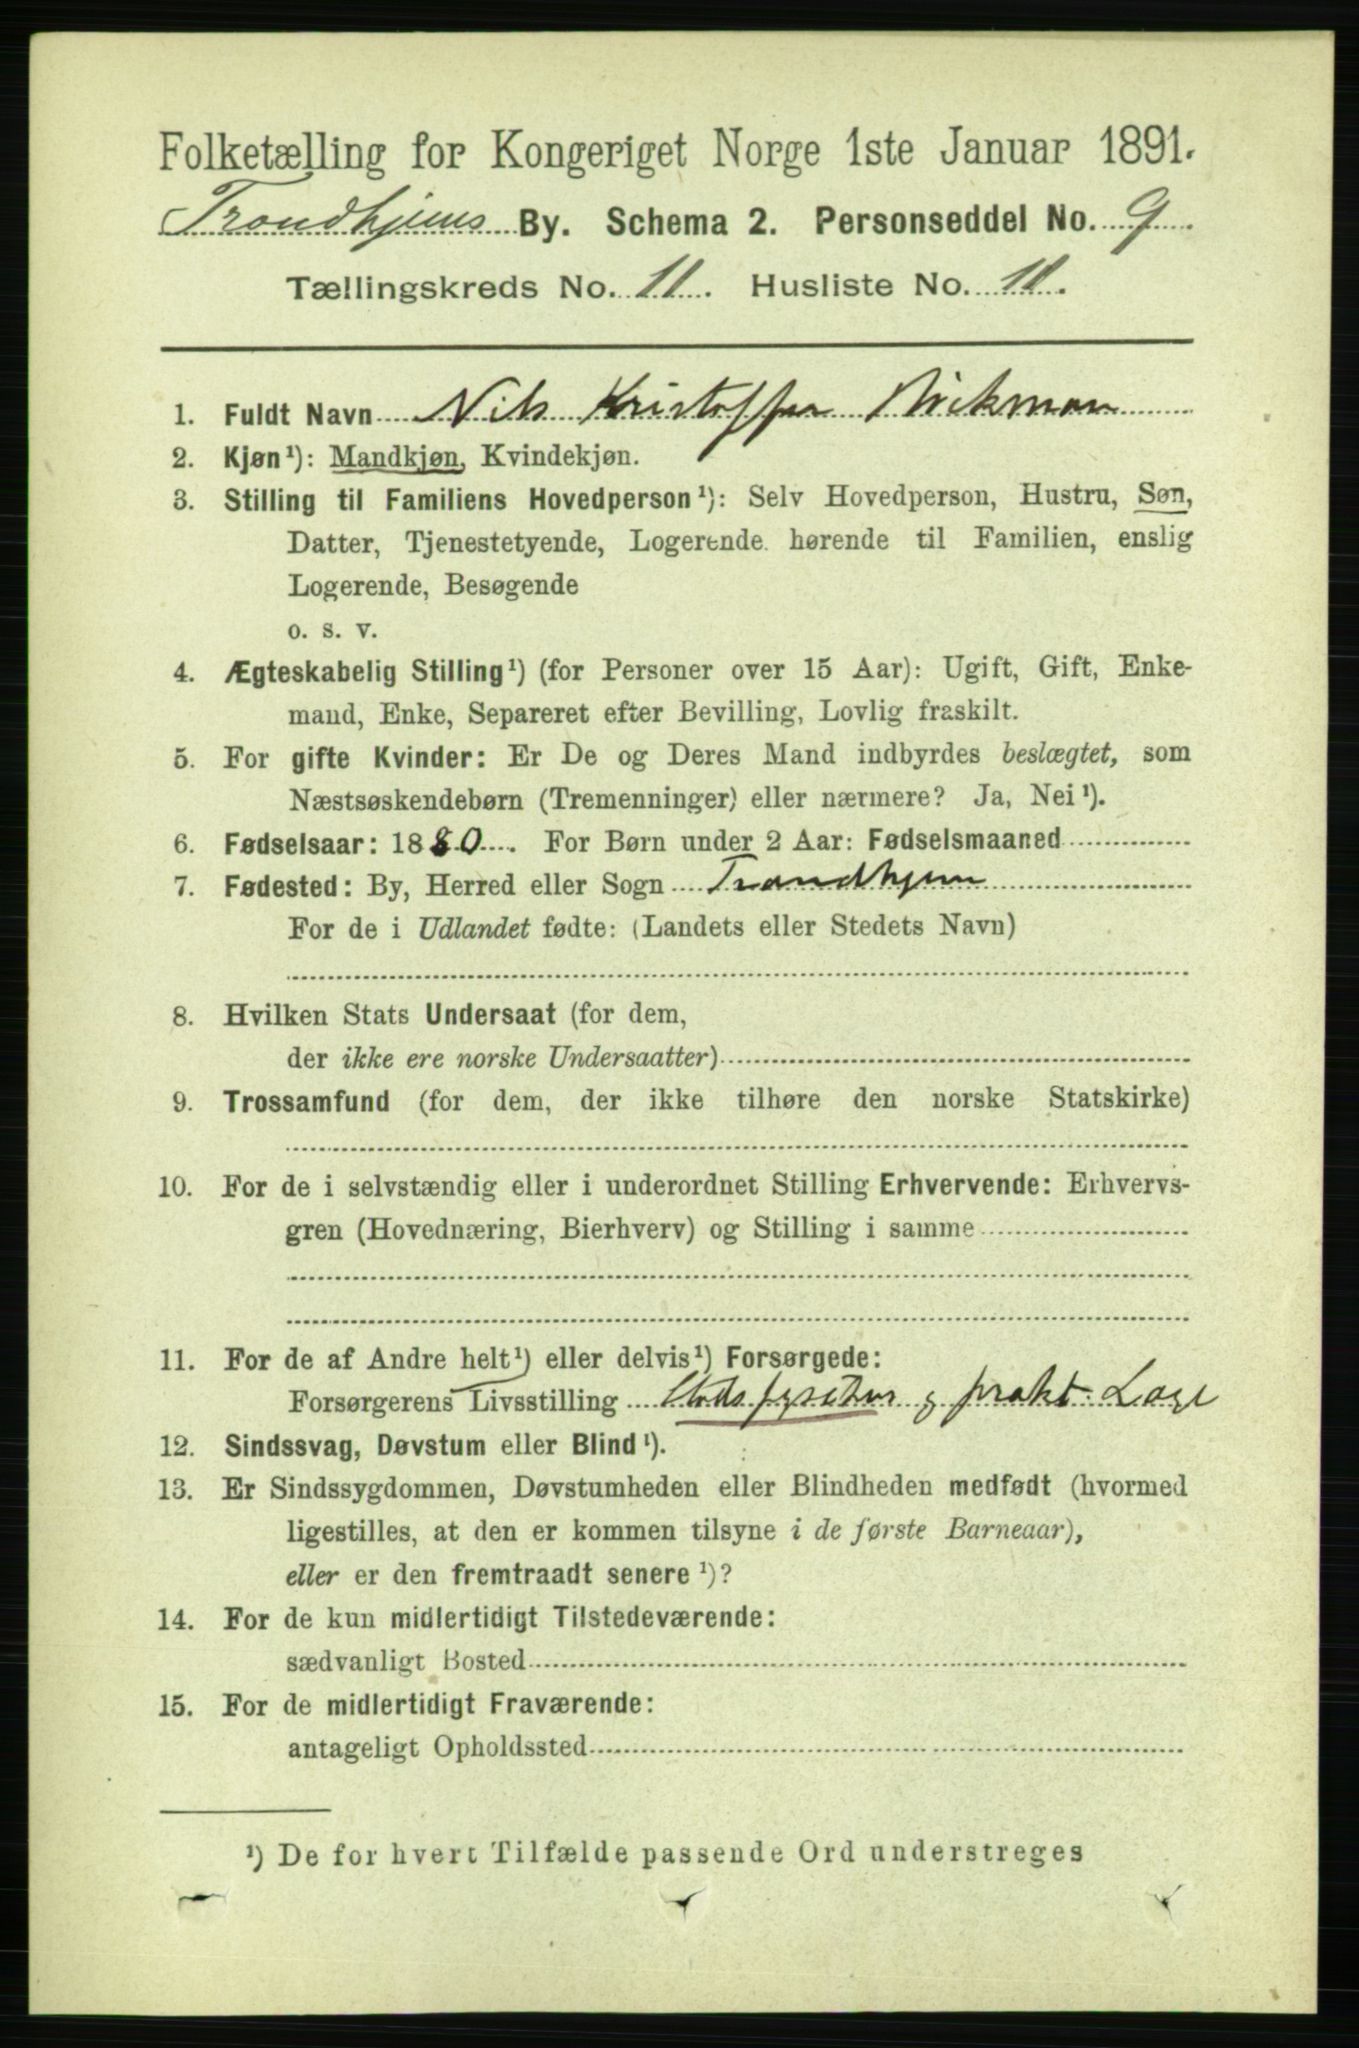 Folketælling for Kongeriget Norge 1ste Januar 1891.
Trondhjems By. Schema 2. Personseddel No. 9.
Tællingskreds No. 11. Husliste No. 11.
1. Fuldt Navn Nils Kristoffer
2. Kjøn¹): Mandkjøn, Kvindekjøn.
3. Stilling til Familiens Hovedperson¹): Selv Hovedperson, Hustru, Søn,
Datter, Tjenestetyende, Logerende hørende til Familien, enslig
Logerende, Besøgende
o. s. v.
4. Ægteskabelig Stilling¹) (for Personer over 15 Aar): Ugift, Gift, Enke-
mand, Enke, Separeret efter Bevilling, Lovlig fraskilt.
5. For gifte Kvinder: Er De og Deres Mand indbyrdes beslægtet, som
Næstsøskendebørn (Tremenninger) eller nærmere? Ja, Nei¹).
6. Fødselsaar: 1880. For Børn under 2 Aar: Fødselsmaaned
7. Fødested: By, Herred eller Sogn Trondhjem
For de i Udlandet fødte: (Landets eller Stedets Navn)
8. Hvilken Stats Undersaat (for dem,
der ikke ere norske Undersaatter)
9. Trossamfund (for dem, der ikke tilhøre den norske Statskirke)
10. For de i selvstændig eller i underordnet Stilling Erhvervende: Erhvervs-
gren (Hovednæring, Bierhverv) og Stilling i samme
11. For de af Andre helt¹) eller delvis¹) Forsørgede:
Forsørgerens Livsstilling Stadsfysikus og prakt. Læge
12. Sindssvag, Døvstum eller Blind¹).
13. Er Sindssygdommen, Døvstumheden eller Blindheden medfødt (hvormed
ligestilles, at den er kommen tilsyne i de første Barneaar),
eller er den fremtraadt senere¹)?
14. For de kun midlertidigt Tilstedeværende:
sædvanligt Bosted
15. For de midlertidigt Fraværende:
antageligt Opholdssted
¹) De for hvert Tilfælde passende Ord understreges